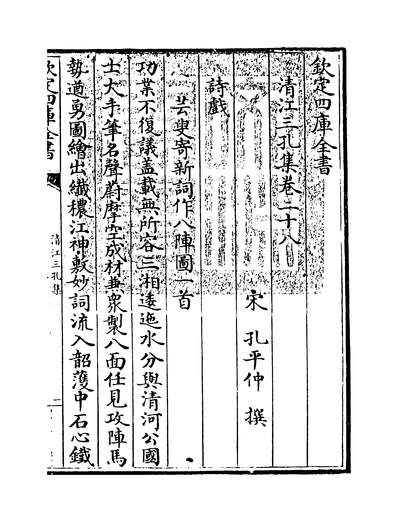 欽定四庫全書
清江三孔集卷二十八
宋 孔平仲 撰
詩戲
芸叟寄新詞作八陣圖一首
功業不復議蓋載無所容三湘逶迤水分與清河公國
士大手筆名聲蔚摩空成材兼衆製八面任見攻陣馬
勢遒勇圖繪出纖穠江神敷妙詞流入韶頀中石心鐵
欽定四庫全書
清江三孔集
二